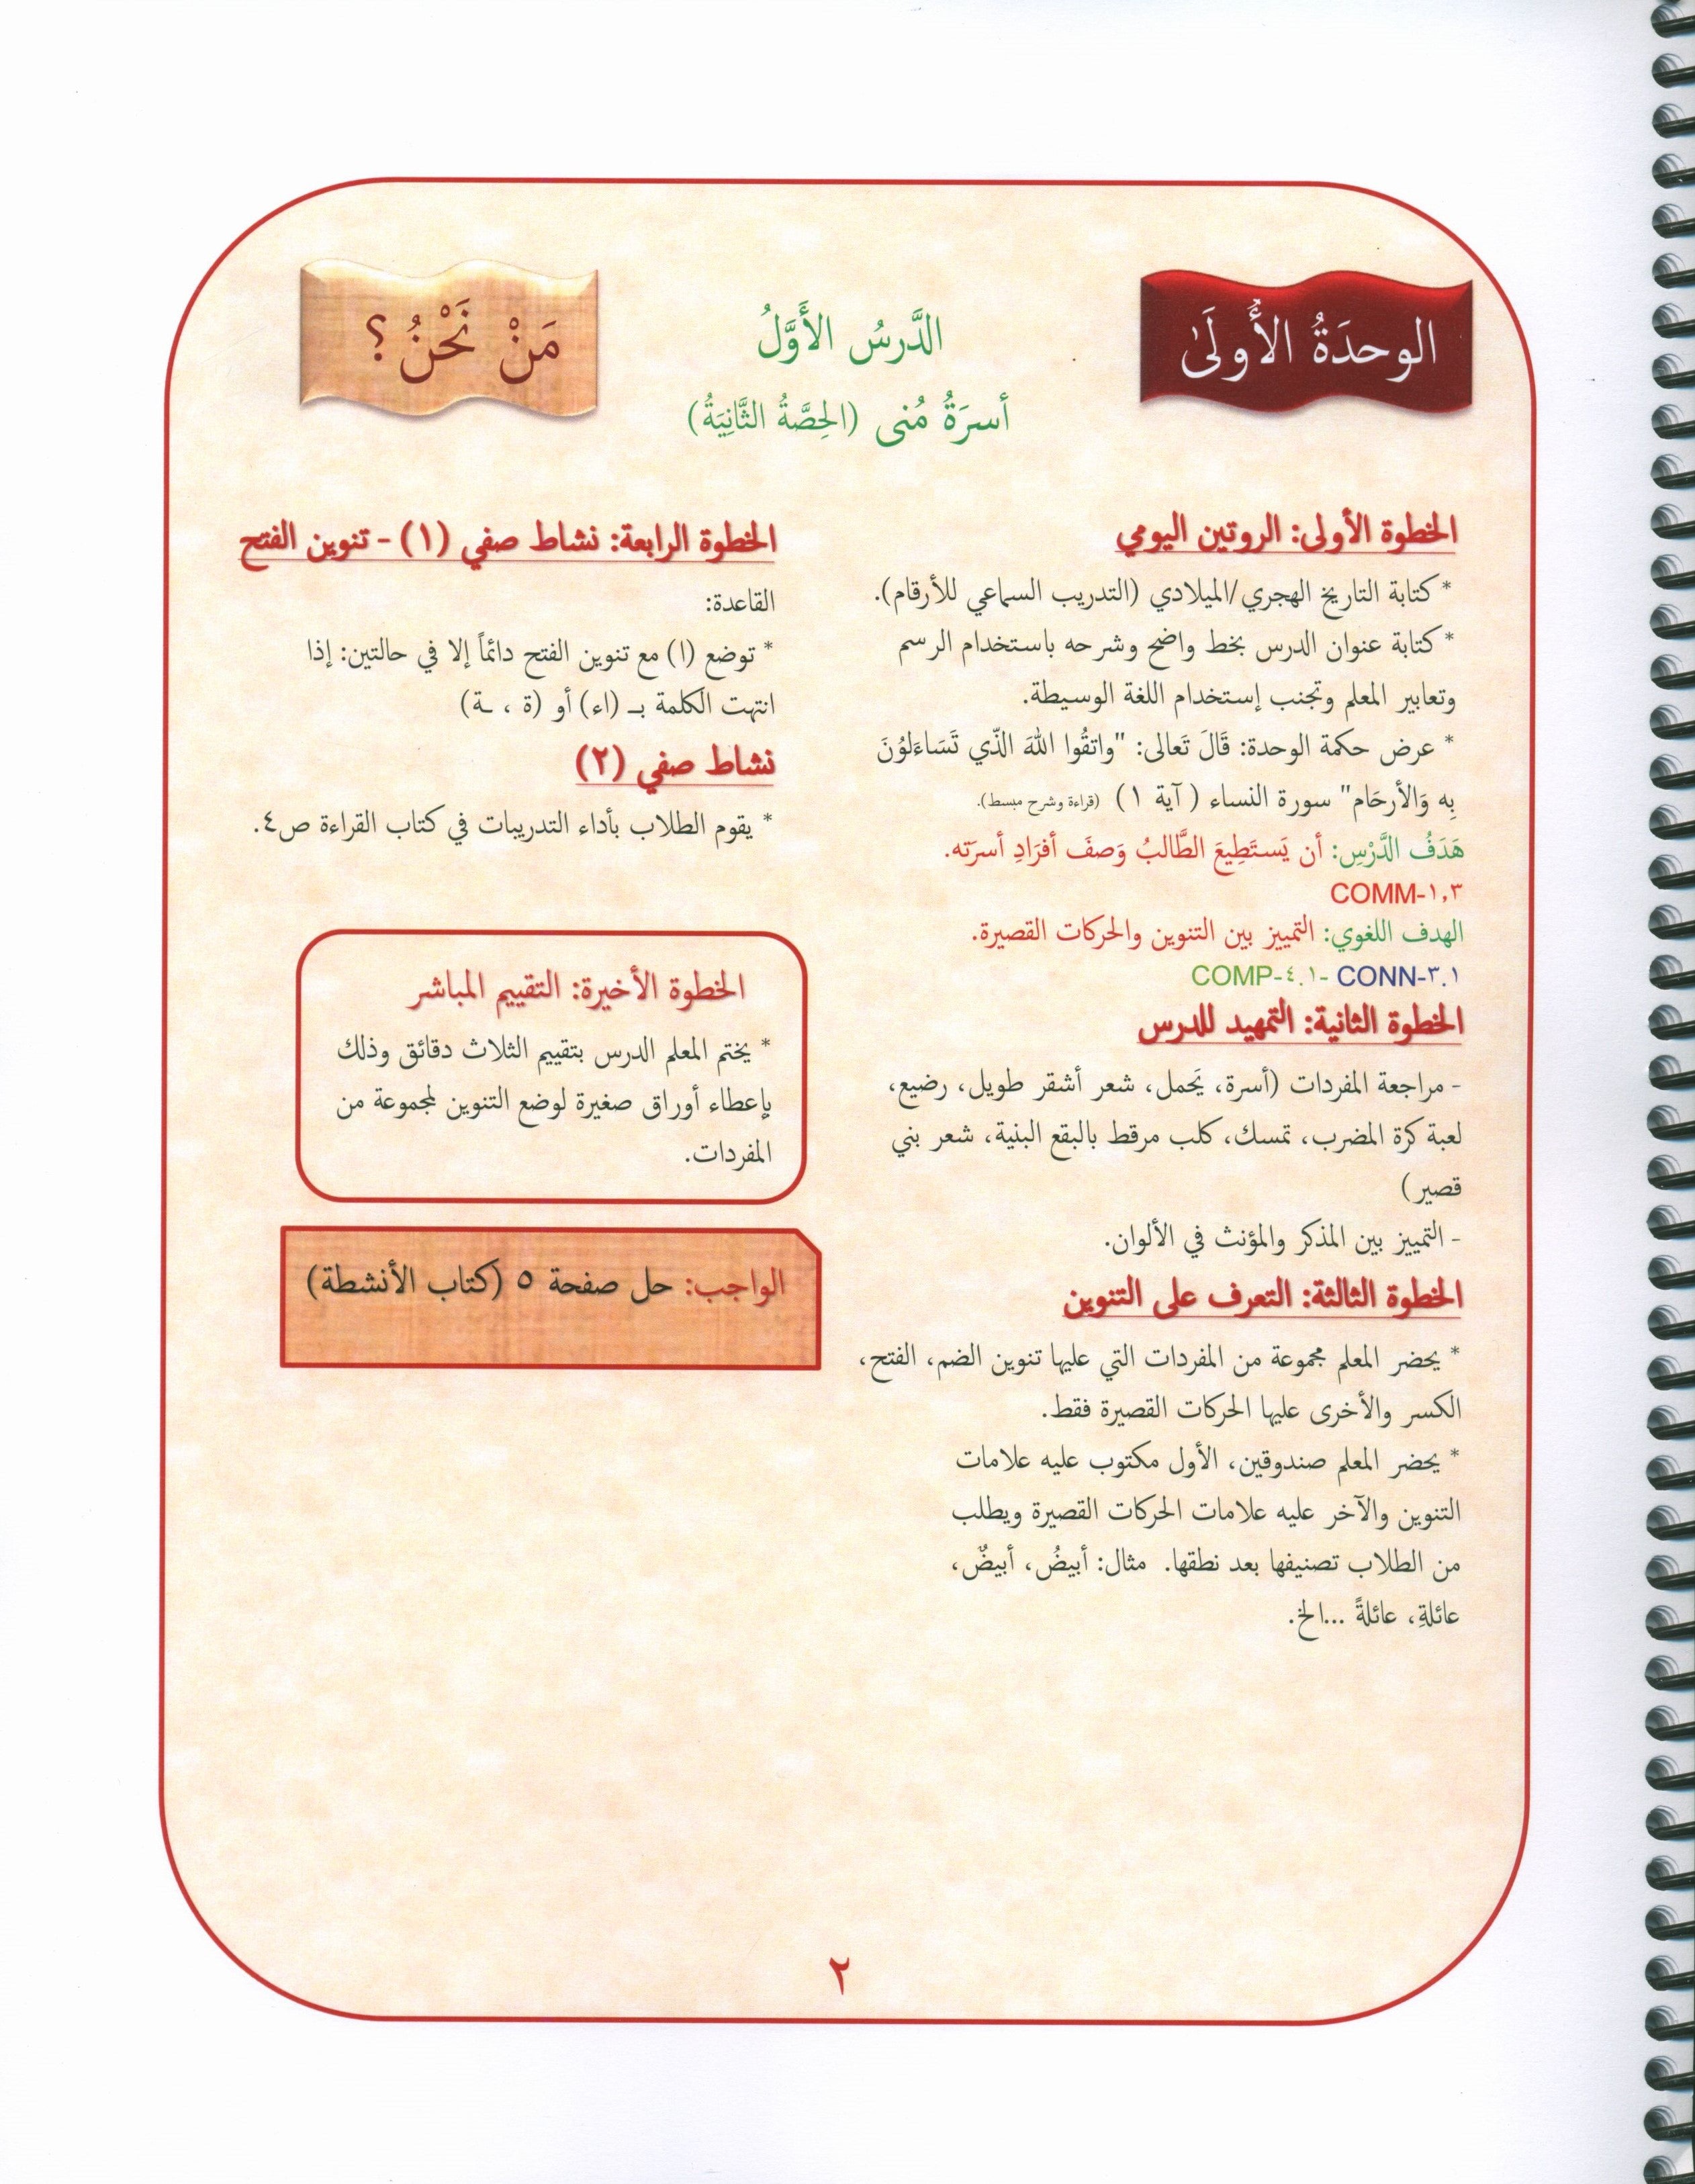 الوحدَةُ الأُولَىٰ
الدَّرسُ الأَوَّلُ
أسرَةُ مُنى (الحِصَّةُ الثَّانِيَةُ)
مَنْ نَحْنُ؟
الخطوة الأولى: الروتين اليومي
* كتابة التاريخ الهجري/الميلادي (التدريب السماعي للأرقام).
* كتابة عنوان الدرس بخط واضح وشرحه باستخدام الرسم
وتعابير المعلم وتجنب إستخدام اللغة الوسيطة.
* عرض حكمة الوحدة: قَالَ تَعالى: "واتقُوا اللهَ الذّي تَسَاءَلوُنَ
بِه وَالأرحَام" سورة النساء ( آية ١ ) (قراءة وشرح مبسط).
هَدَفُ الدَّرْسِ: أن يَستَطِيعَ الطَّالبُ وَصفَ أفرَادِ أسرَته.
COMM-١,٣
الهدف اللغوي: التمييز بين التنوين والحركات القصيرة.
COMP-٤.١- CONN-٣.١
الخطوة الثانية: التمهيد للدرس
- مراجعة المفردات (أسرة، يَحمل، شعر أشقر طويل، رضيع،
لعبة كرة المضرب، تمسك، كلب مرقط بالبقع البنية، شعر بني
قصير)
- التمييز بين المذكر والمؤنث في الألوان.
الخطوة الثالثة: التعرف على التنوين
* يحضر المعلم مجموعة من المفردات التي عليها تنوين الضم، الفتح،
الكسر والأخرى عليها الحركات القصيرة فقط.
* يحضر المعلم صندوقين، الأول مكتوب عليه علامات
التنوين والآخر عليه علامات الحركات القصيرة ويطلب
من الطلاب تصنيفها بعد نطقها. مثال: أبيضُ، أبيضٌ،
عائلةِ، عائلةً ...الخ.
الخطوة الرابعة: نشاط صفي (١) - تنوين الفتح
القاعدة:
* توضع (ا) مع تنوين الفتح دائماً إلا في حالتين: إذا
انتهت الكلمة بـ (اء) أو (ة ، ـة)
نشاط صفي (٢)
* يقوم الطلاب بأداء التدريبات في كتاب القراءة ص٤.
الخطوة الأخيرة: التقييم المباشر
* يختم المعلم الدرس بتقييم الثلاث دقائق وذلك
بإعطاء أوراق صغيرة لوضع التنوين لمجموعة من
المفردات.
الواجب: حل صفحة ٥ (كتاب الأنشطة)
٢